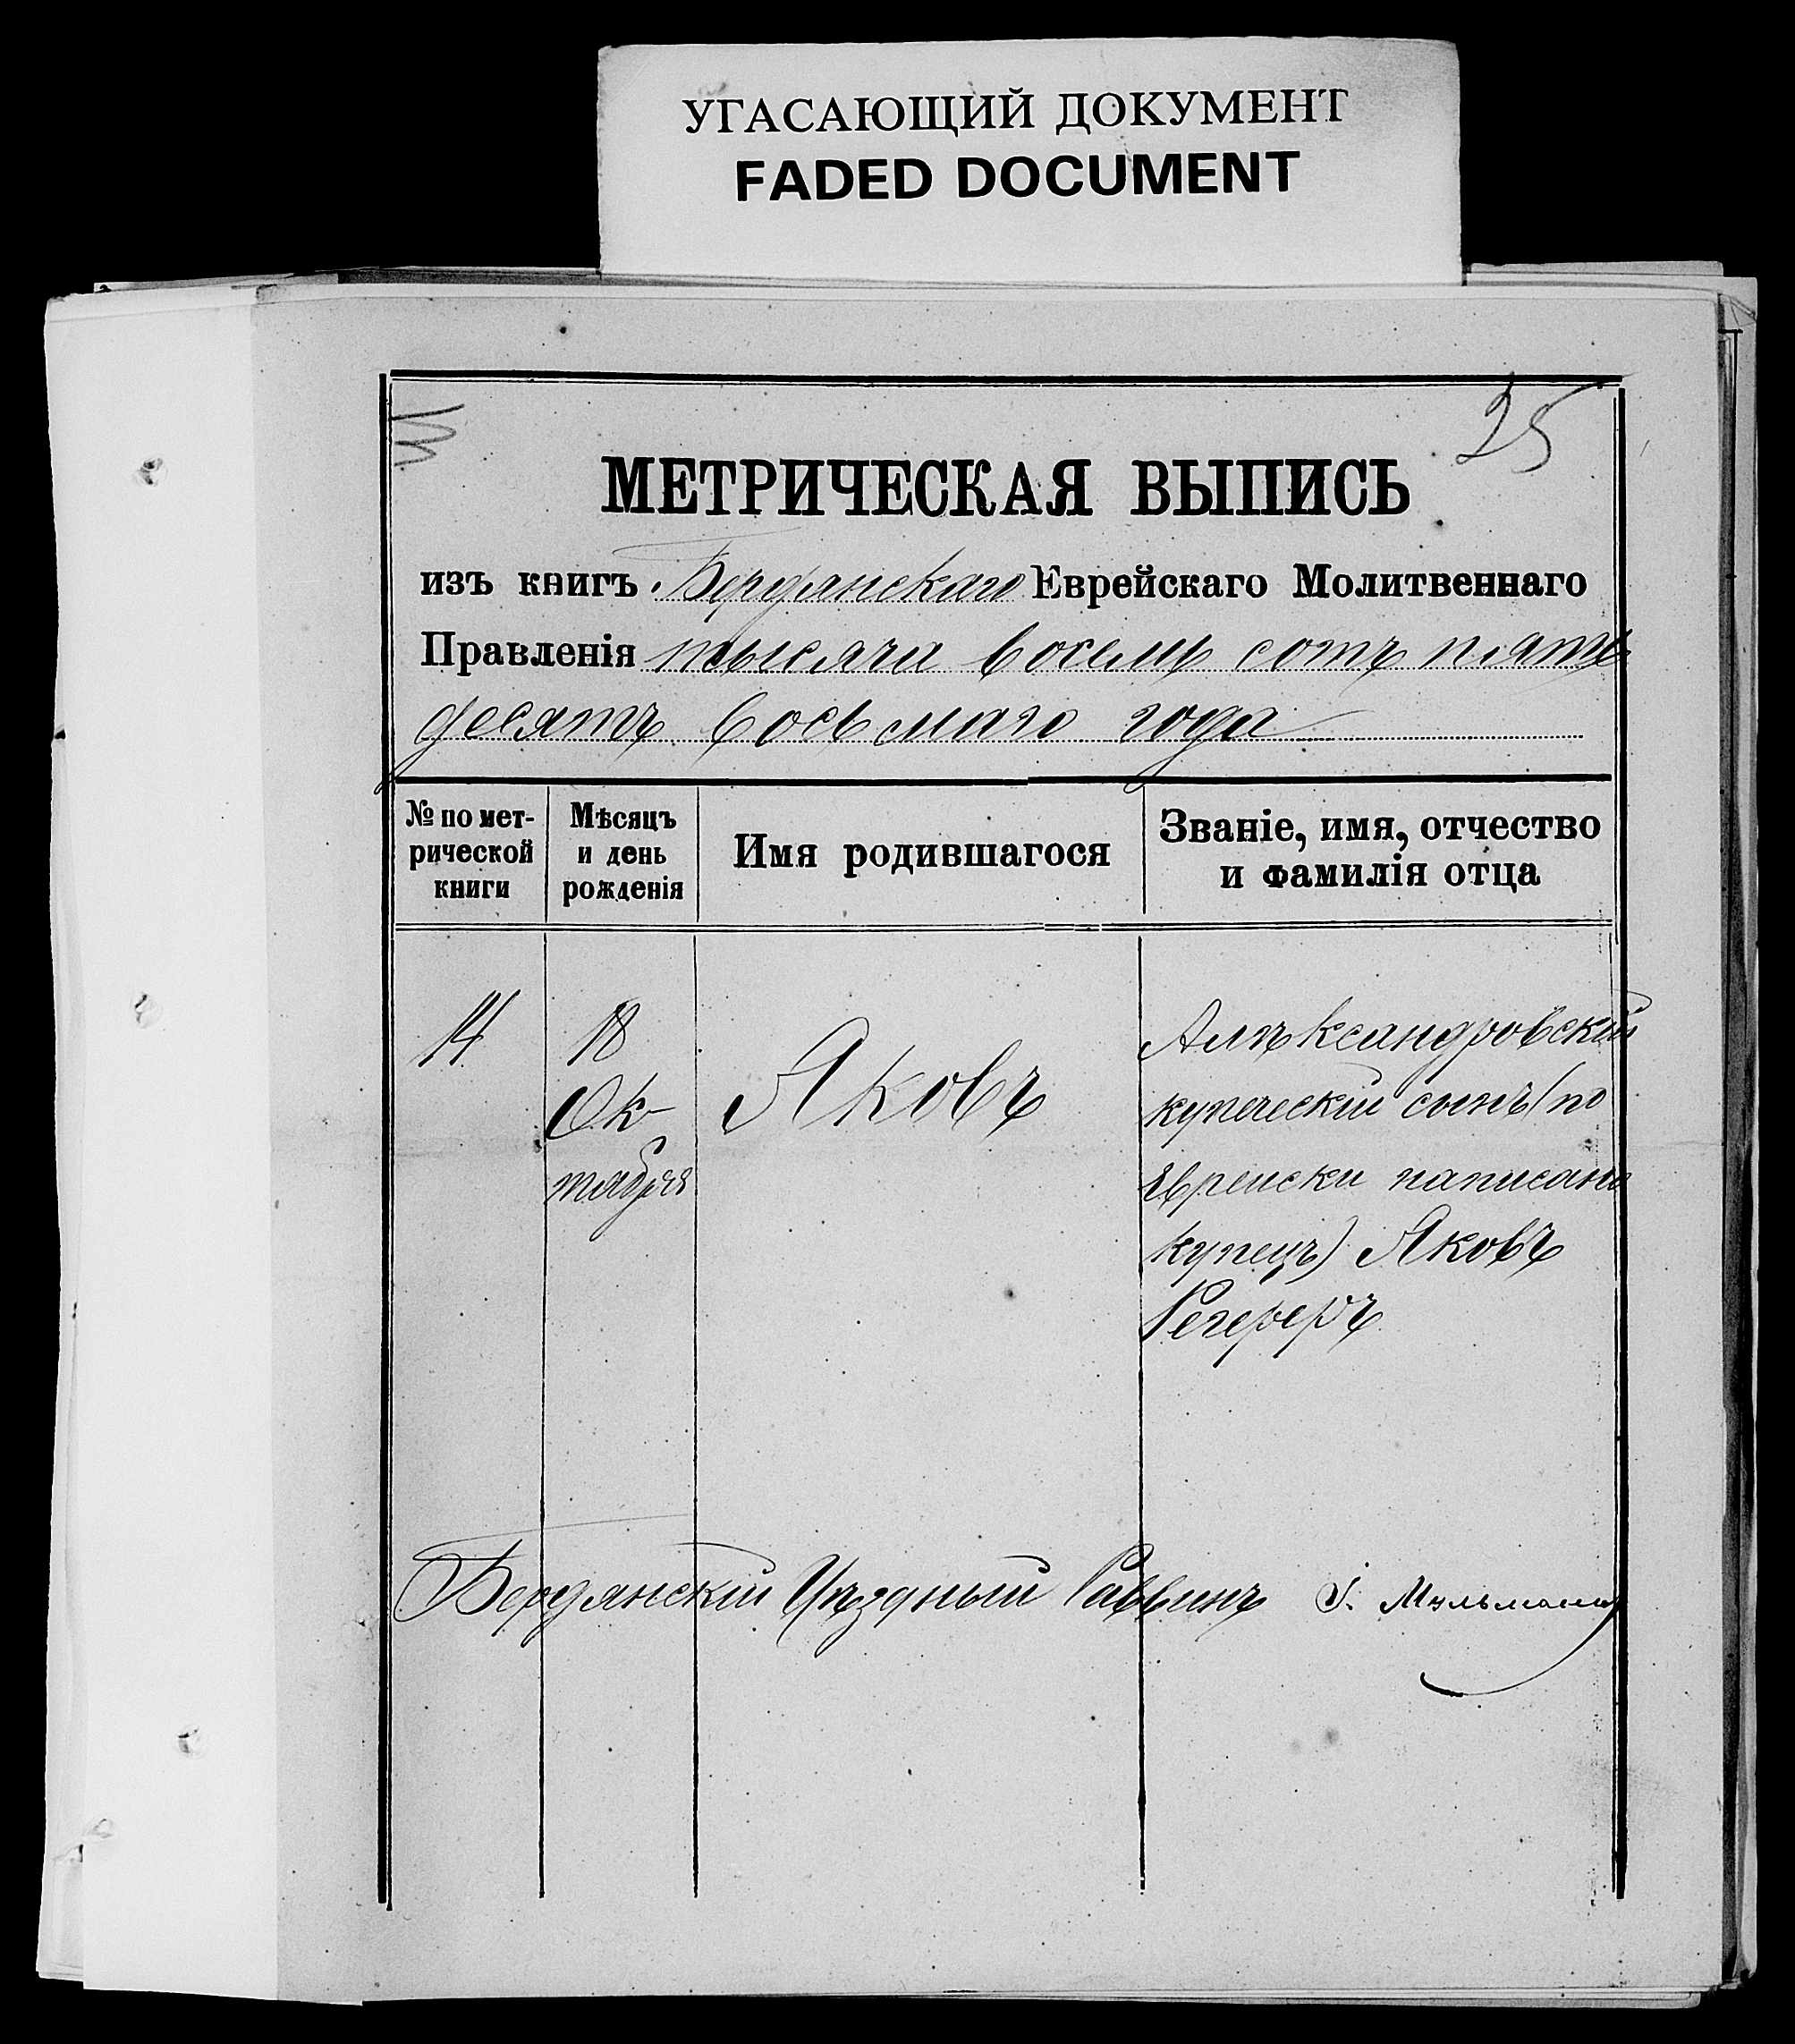 УГАСАЮЩИЙ ДОКУМЕНТ
FADED DOCUMENT
25
МЕТРИЧЕСКАЯ ВЫПИСЬ
изъ книгъ Бердянскаго Еврейскаго Молитвеннаго
Правленія тысяча восемь сотъ пять
десятъ восьмаго года
№ по мет-
рической
книги
Мѣсяцъ
и день
рожденія
Имя родившагося
Званіе, имя, отчество
и фамилія отца
14
18
Ок-
тября
Яковъ
Алѣксандровскій
купеческій сынъ (по
Еврейски написано
купецъ) Яковъ
Регереръ
Бердянскій Уѣздный Раввинъ І.